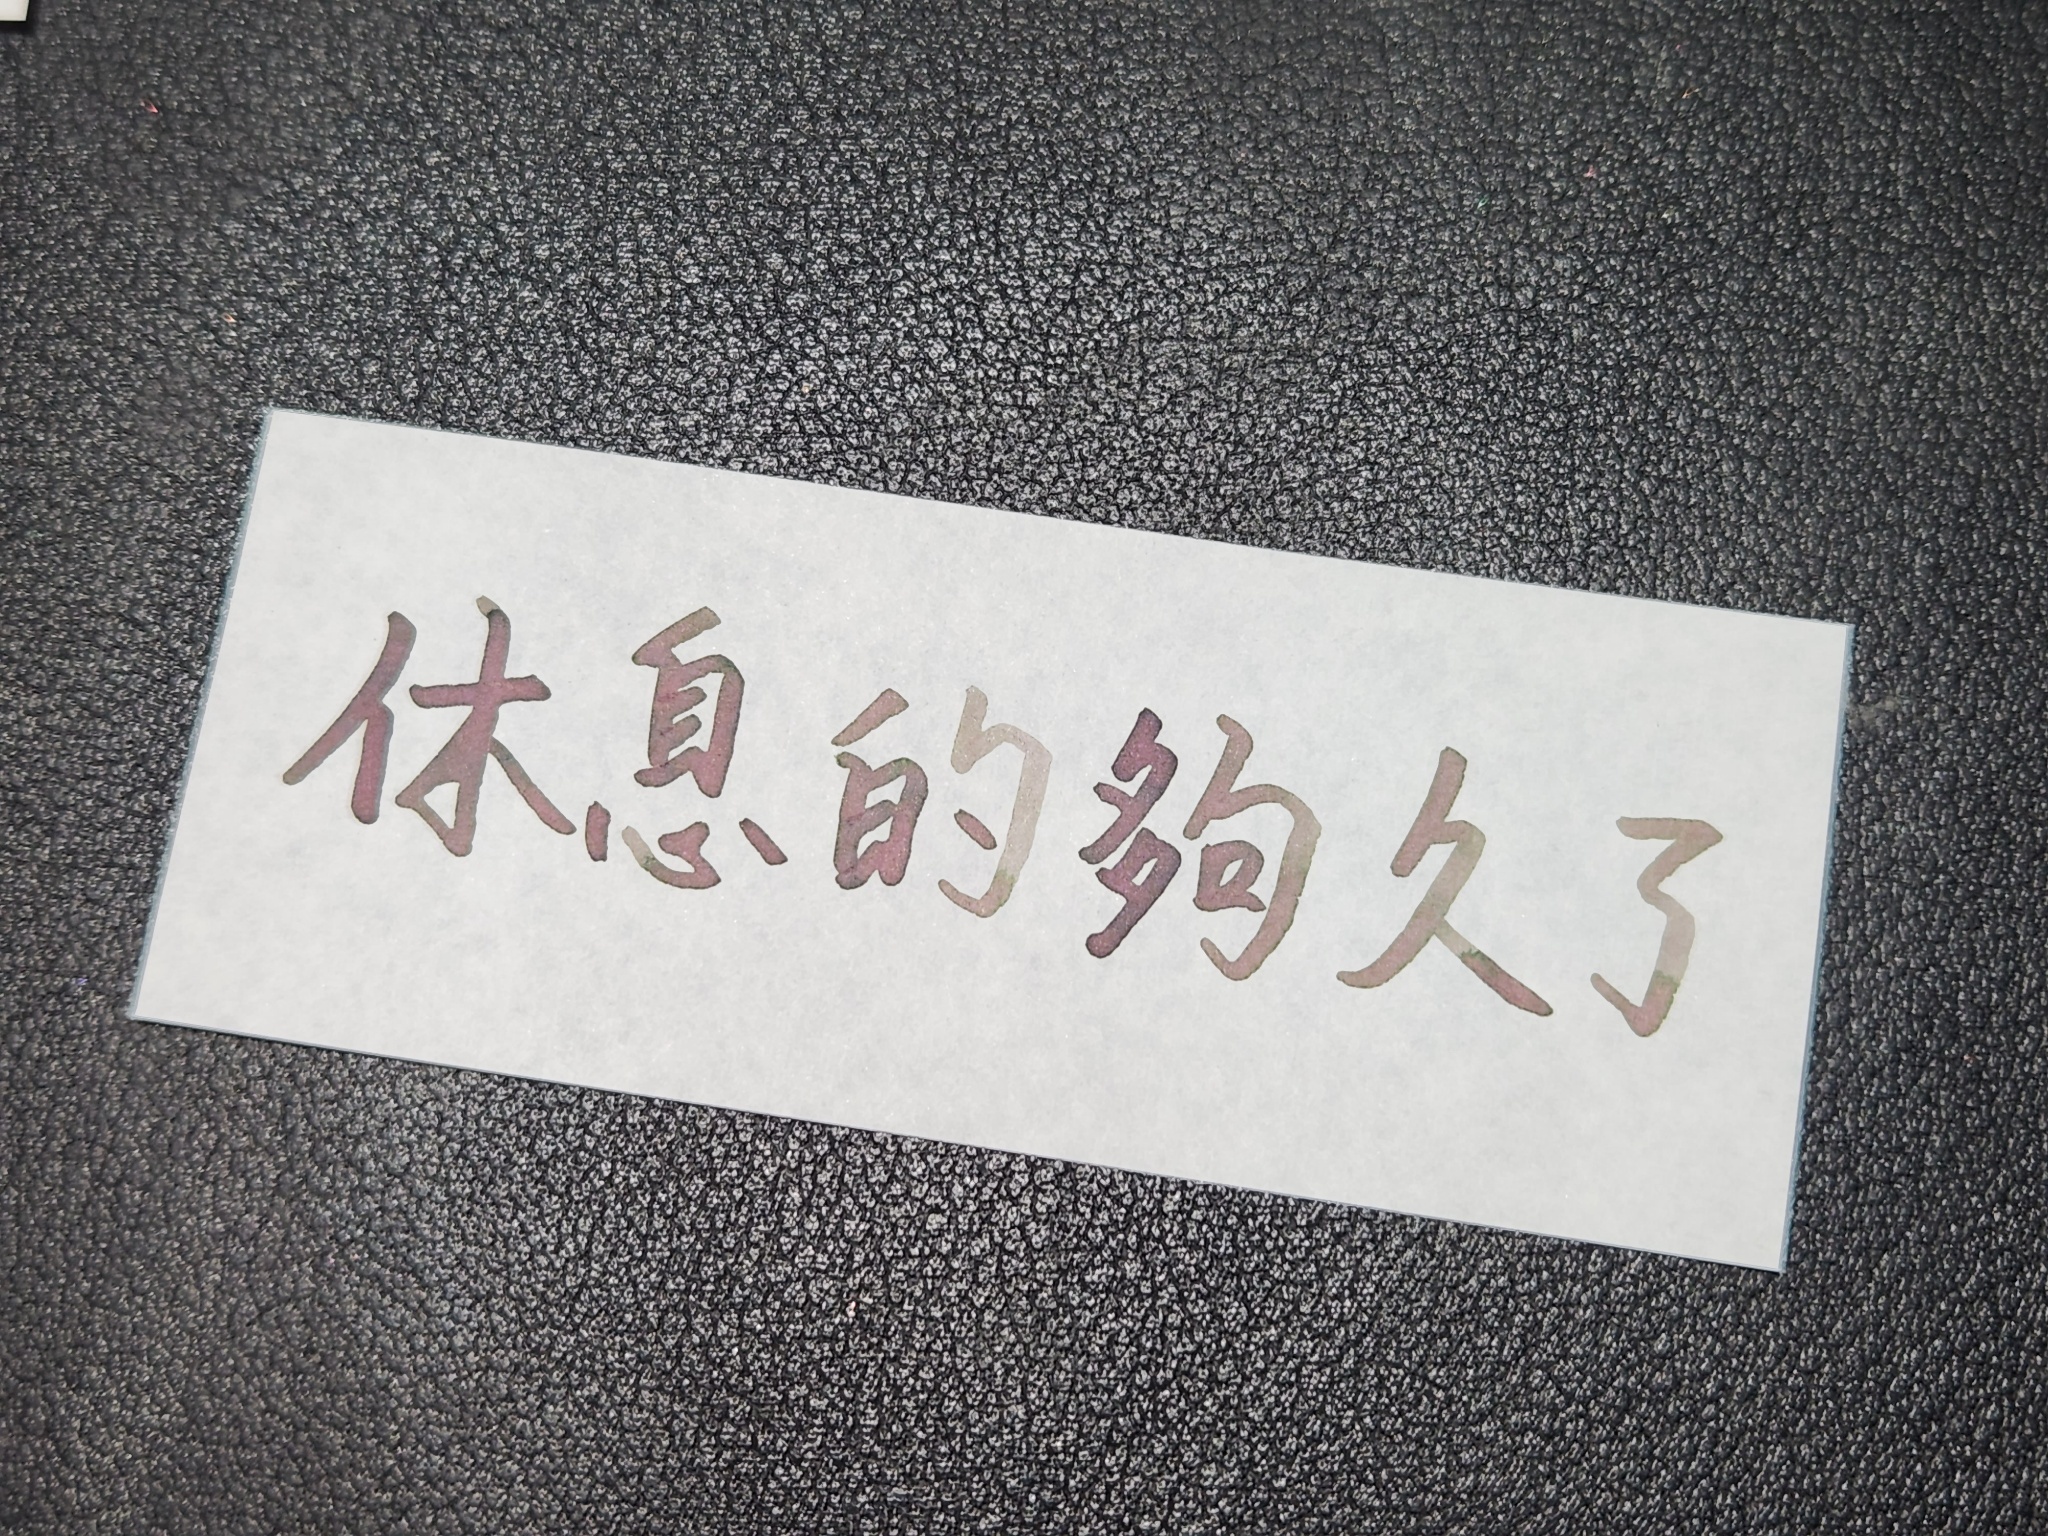 休息的夠久了